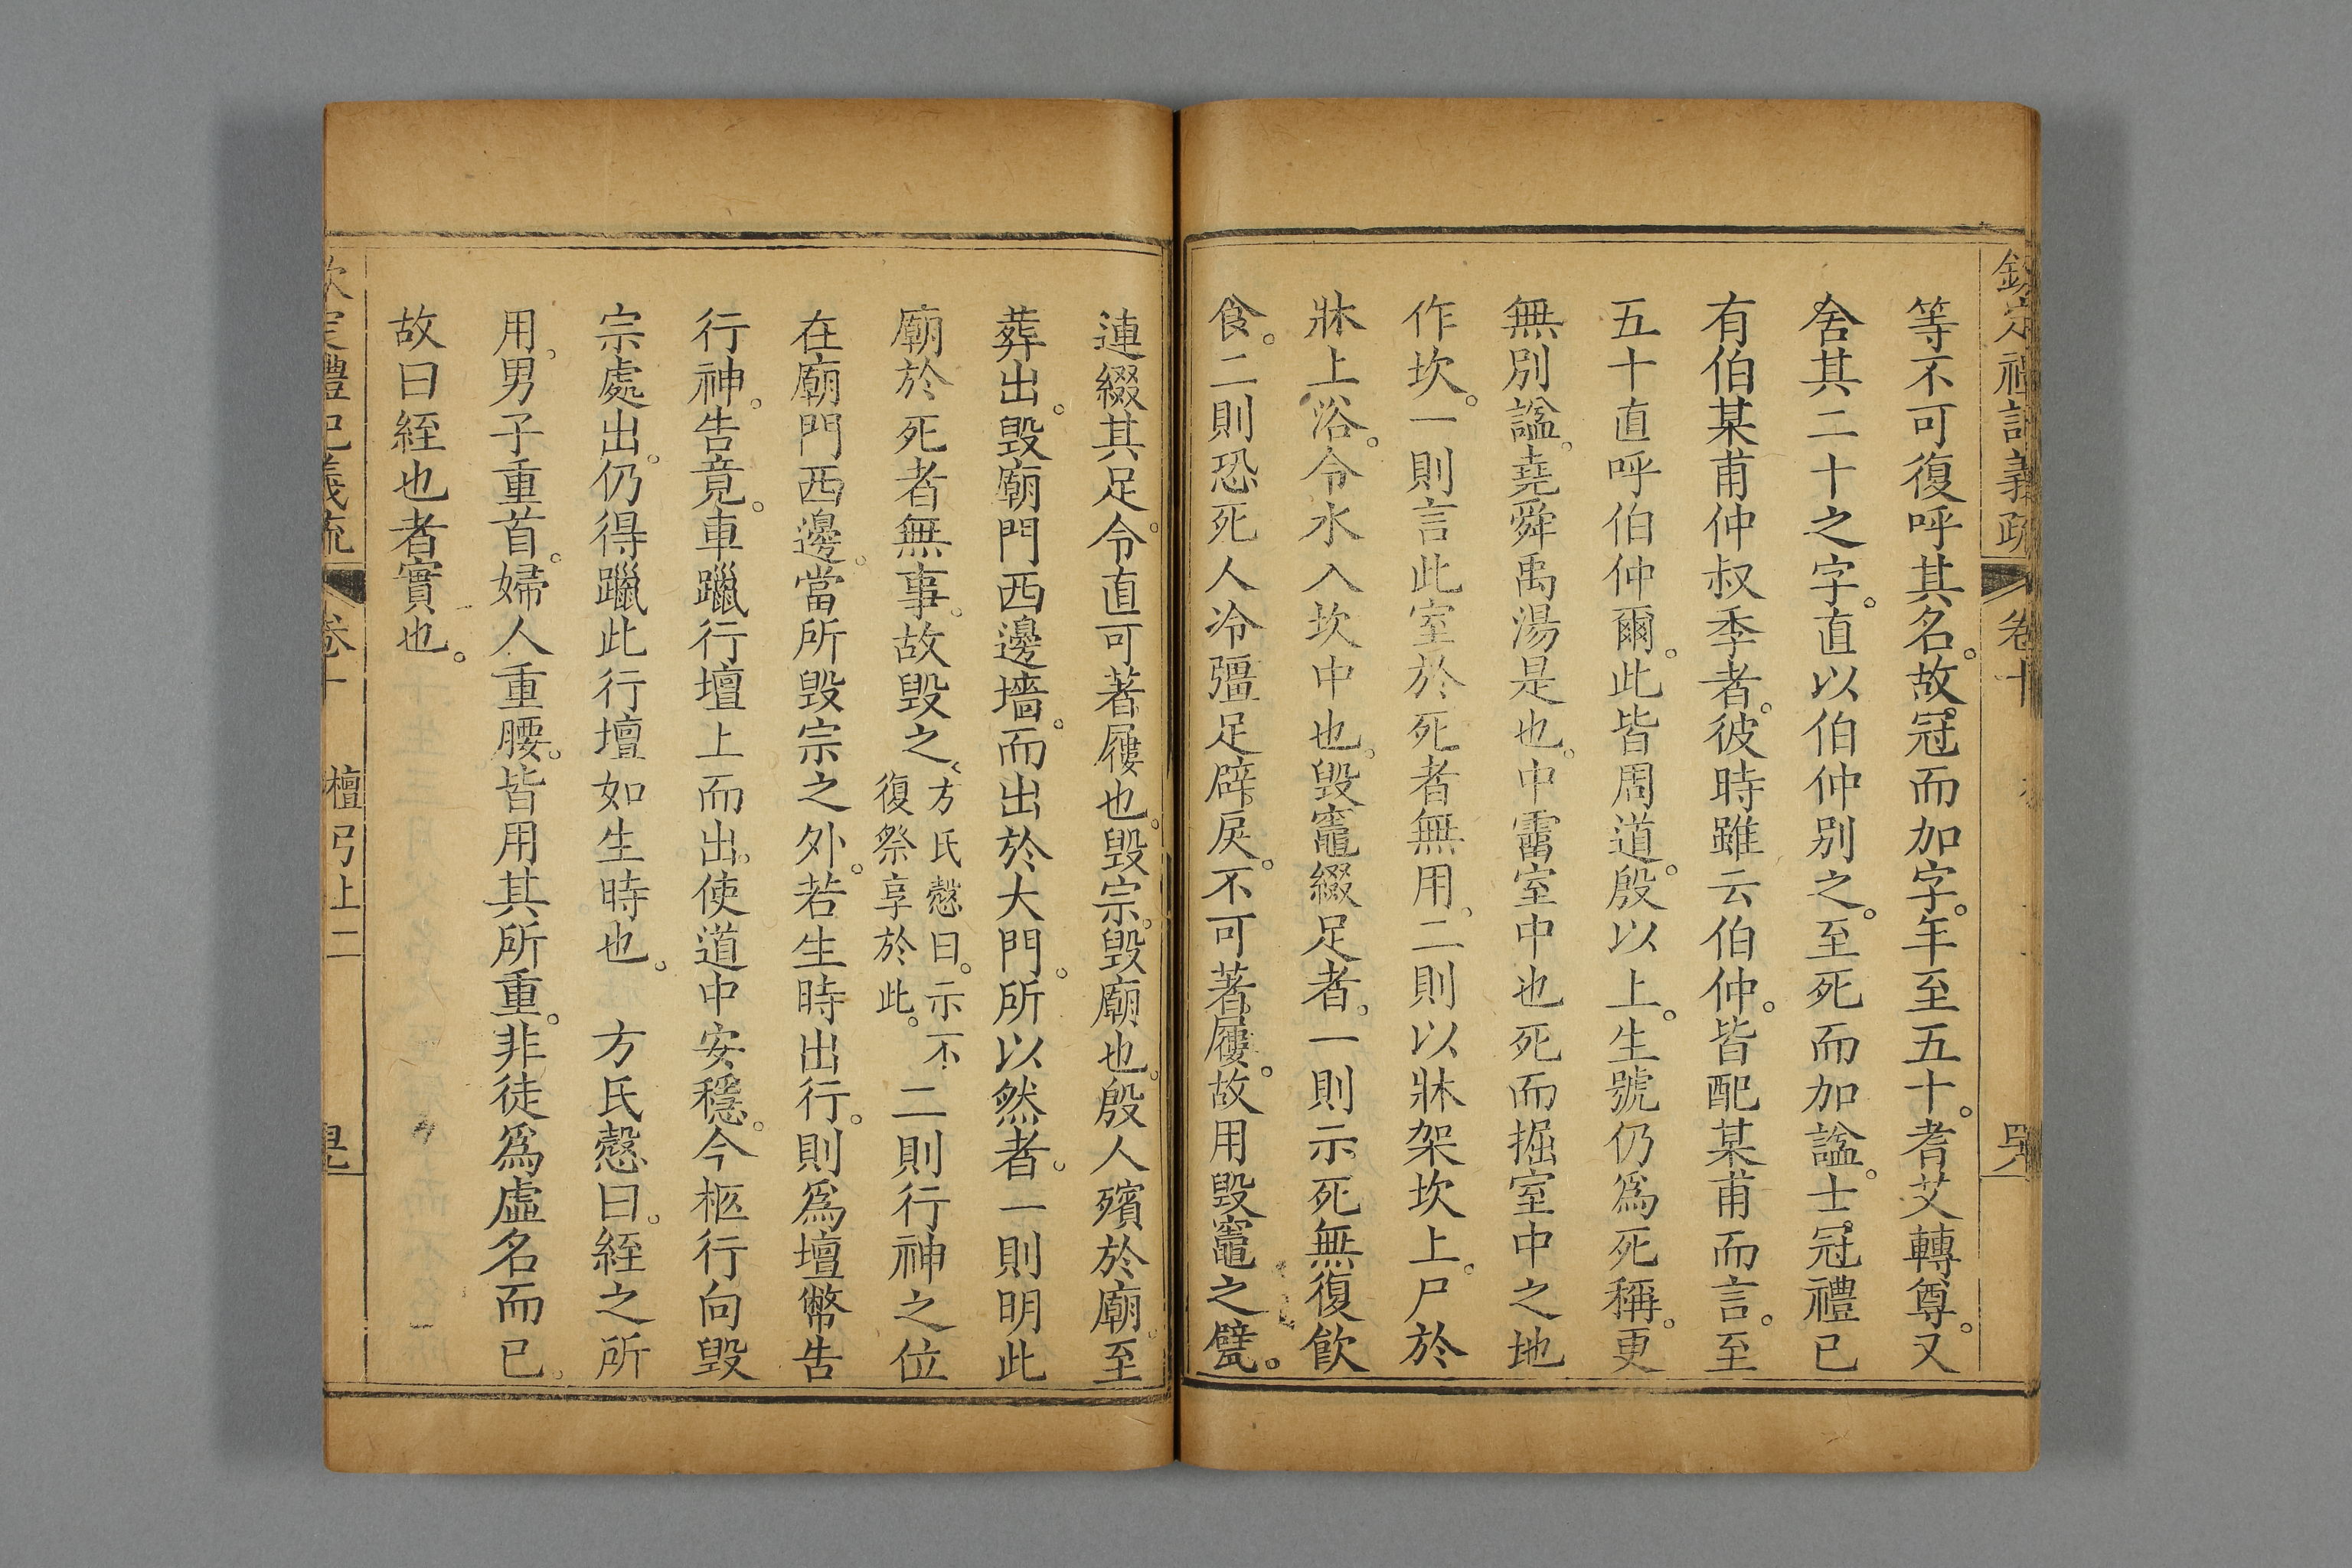 欽定禮記義疏 卷十
等不可復呼其名。故冠而加字。年至五十。耆艾轉尊。又
舍其二十之字。直以伯仲別之。至死而加諡。士冠禮已
有伯某甫仲叔季者。彼時雖云伯仲。皆配某甫而言。至
五十直呼伯仲爾。此皆周道。殷以上。生號仍爲死稱。更
無別諡。堯舜禹湯是也。中霤室中也死而掘室中之地
作坎。一則言此室於死者無用。二則以牀架坎上。尸於
牀上浴。令水入坎中也。毀竈綴足者。一則示死無復飮
食。二則恐死人冷彊足辟戾。不可著屨。故用毀竈之甓。
連綴其足。令直可著屨也。毀宗。毀廟也。殷人殯於廟。至
葬出。毀廟門西邊墻。而出於大門。所以然者。一則明此
廟於死者無事。故毀之、方氏慤曰。示不復祭享於此。二則行神之位
在廟門西邊。當所毀宗之外。若生時出行。則爲壇幣告
行神。告竟。車躐行壇上而出。使道中安穩。今柩行向毀
宗處出。仍得躐此行壇如生時也。 方氏慤曰。絰之所
用。男子重首。婦人重腰。皆用其所重。非徒爲虛名而已。
故曰絰也者實也。
欽定禮記義疏 卷十 檀弓上二